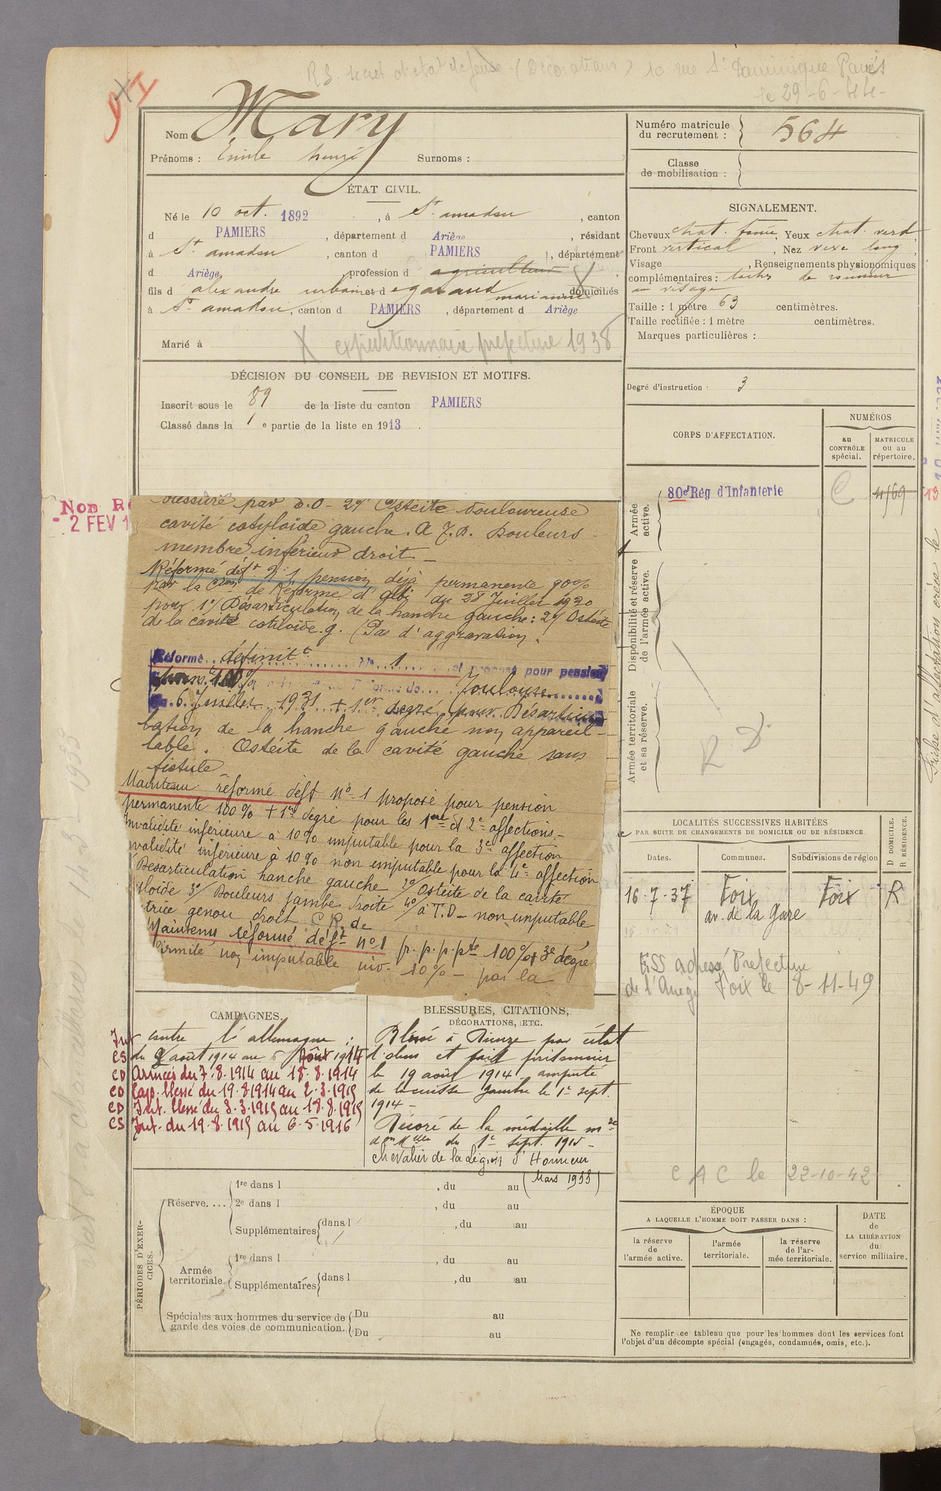 R.S. secret d'état défense (Décorations) 10 rue St Dominique Paris
le 29-6-44-
Nom Mary
Prénoms : Emile Surnoms :
ÉTAT CIVIL.
Né le 10 oct. 1892, à St amadou, canton
d PAMIERS, département d Ariège, résidant
à St amadou, canton d PAMIERS, département
d Ariège profession d agriculteur
fils d alexandre urbain et d garaud marianne domiciliés
à St amadou, canton d PAMIERS, département d Ariège
Marié à
X expéditionnaire préfecture 1938
DÉCISION DU CONSEIL DE REVISION ET MOTIFS.
Inscrit sous le 89 de la liste du canton PAMIERS
Classé dans la 1e partie de la liste en 1913.
Numéro matricule du recrutement : 564
Classe de mobilisation :
SIGNALEMENT.
Cheveux chat. foncé, Yeux chat. verd
Front vertical, Nez vexe long
Visage , Renseignements physionomiques
complémentaires : taches de rousseur
au visage
Taille : 1 mètre 63 centimètres.
Taille rectifiée : 1 mètre centimètres.
Marques particulières :
Degré d'instruction : 3
CORPS D'AFFECTATION.
NUMÉROS
au CONTRÔLE spécial.
MATRICULE ou au répertoire.
Armée active.
80e Rég d'Infanterie
C
4169
Disponibilité et réserve de l'armée active.
Armée territoriale et sa réserve.
R D.
Non R
- 2 FEV 1
blessure par E.O- 2°/ Ostéite douloureuse
cavité cotyloïde gauche. A J.D. Douleurs
membre inférieur droit -
Réformé déft n° 1 pension déjà permanente 90%
par la Con de Réforme d'Albi du 28 Juillet 1920
pour 1°/ Désarticulation de la hanche gauche : 2°/ Ostéite
de la cavité cotiloïde g. (Pas d'aggravation).
Réformé définitt N° 1 et proposé pour pension
Toulouse
6 Juillet 1931 + 1er degré pour Désarticu-
lation de la hanche gauche non appareil-
lable. Ostéite de la cavité gauche sans
fistule
Maintenu réformé déft n° 1 proposé pour pension
permanente 100% + 1er degré pour les 1ère et 2e affections -
Invalidité inférieure à 10% imputable pour la 3e affection
invalidité inférieure à 10% non imputable pour la 4e affection
Désarticulation hanche gauche 2° Ostéite de la cavité
cotyloïde 3° Douleurs jambe droite 4° à T.D- non imputable
genou droit C.R. de
Maintenu réformé déft n° 1 p.p.p.pte 100% et 3e degré
infirmité non imputable inv- 10% - par la
LOCALITÉS SUCCESSIVES HABITÉES
PAR SUITE DE CHANGEMENTS DE DOMICILE OU DE RÉSIDENCE.
Dates. Communes. Subdivisions de région
D DOMICILE. R RÉSIDENCE.
16-7-37 Foix Foix R
av. de la Gare
adressé Préfecture
de l'Ariège Foix le 8-11-49
C A C le 22-10-42
CAMPAGNES.
Int contre l'allemagne :
CS du 9 août 1914 au 6 Août 1914
CD Armées du 7.8.1914 au 18.8.1914
CD Cap. blessé du 19.8.1914 au 2.3.1915
CD Int. blessé du 3.3.1915 au 18.8.1915
CS Int. du 19.8.1915 au 6.5.1916
BLESSURES, CITATIONS,
DÉCORATIONS, ETC.
Blessé à Dieuze par éclat
d'obus et fait prisonnier
le 19 août 1914 amputé
de la cuisse gauche le 1er sept.
1914 -
Décoré de la médaille mre
du 1er sept. 1915 -
chevalier de la Légion d'Honneur
(Mars 1933)
PÉRIODES D'EXERCICES.
Réserve....
1re dans l , du au
2e dans l , du au
Supplémentaires dans l , du au
Armée territoriale.
1re dans l , du au
Supplémentaires dans l , du au
Spéciales aux hommes du service de
garde des voies de communication.
Du au
Du au
ÉPOQUE
A LAQUELLE L'HOMME DOIT PASSER DANS :
la réserve de l'armée active.
l'armée territoriale.
la réserve de l'armée territoriale.
DATE
de
LA LIBÉRATION
du
service militaire.
Ne remplir ce tableau que pour les hommes dont les services font
l'objet d'un décompte spécial (engagés, condamnés, omis, etc.).